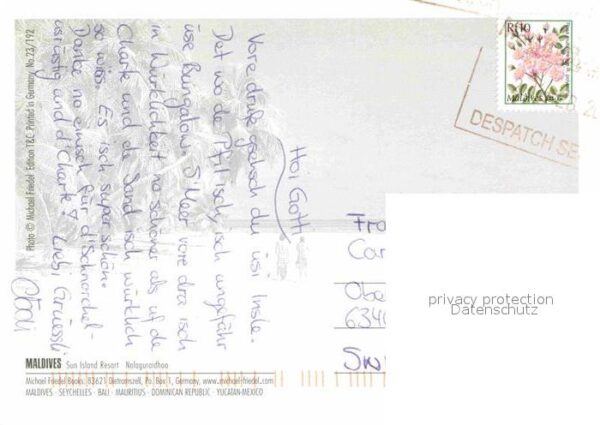 Hoi Gotti
Voredruf gsehsch du üsi Insle.
Det wo de Pfil isch, isch ungefähr
üse Bungalow. S'Meer vore dra isch
in Würklichkeit no schöner als uf de
Charte und de Sand isch würklich
so wiis. Es isch super schön.
Danke no einisch für d'Schnorchel-
usrüstig und d'Charte! Liebi Grüessli
Rf10
Maldives
DESPATCH SE
Obe
634
privacy protection
Datenschutz
MALDIVES Sun Island Resort Nalaguraidhoo
Michael Friedel Books: 83623 Dietramszell, Po. Box 1, Germany, www.michael-friedel.com
MALDIVES · SEYCHELLES · BALI · MAURITIUS · DOMINICAN REPUBLIC · YUCATAN-MEXICO
Photo © Michael Friedel Edition T&C, Printed in Germany, No.23/192